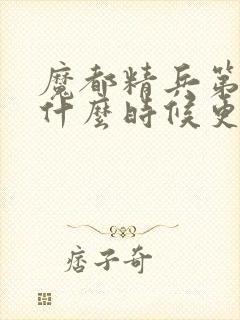 魔都精兵第
什麼時候更
痞子奇